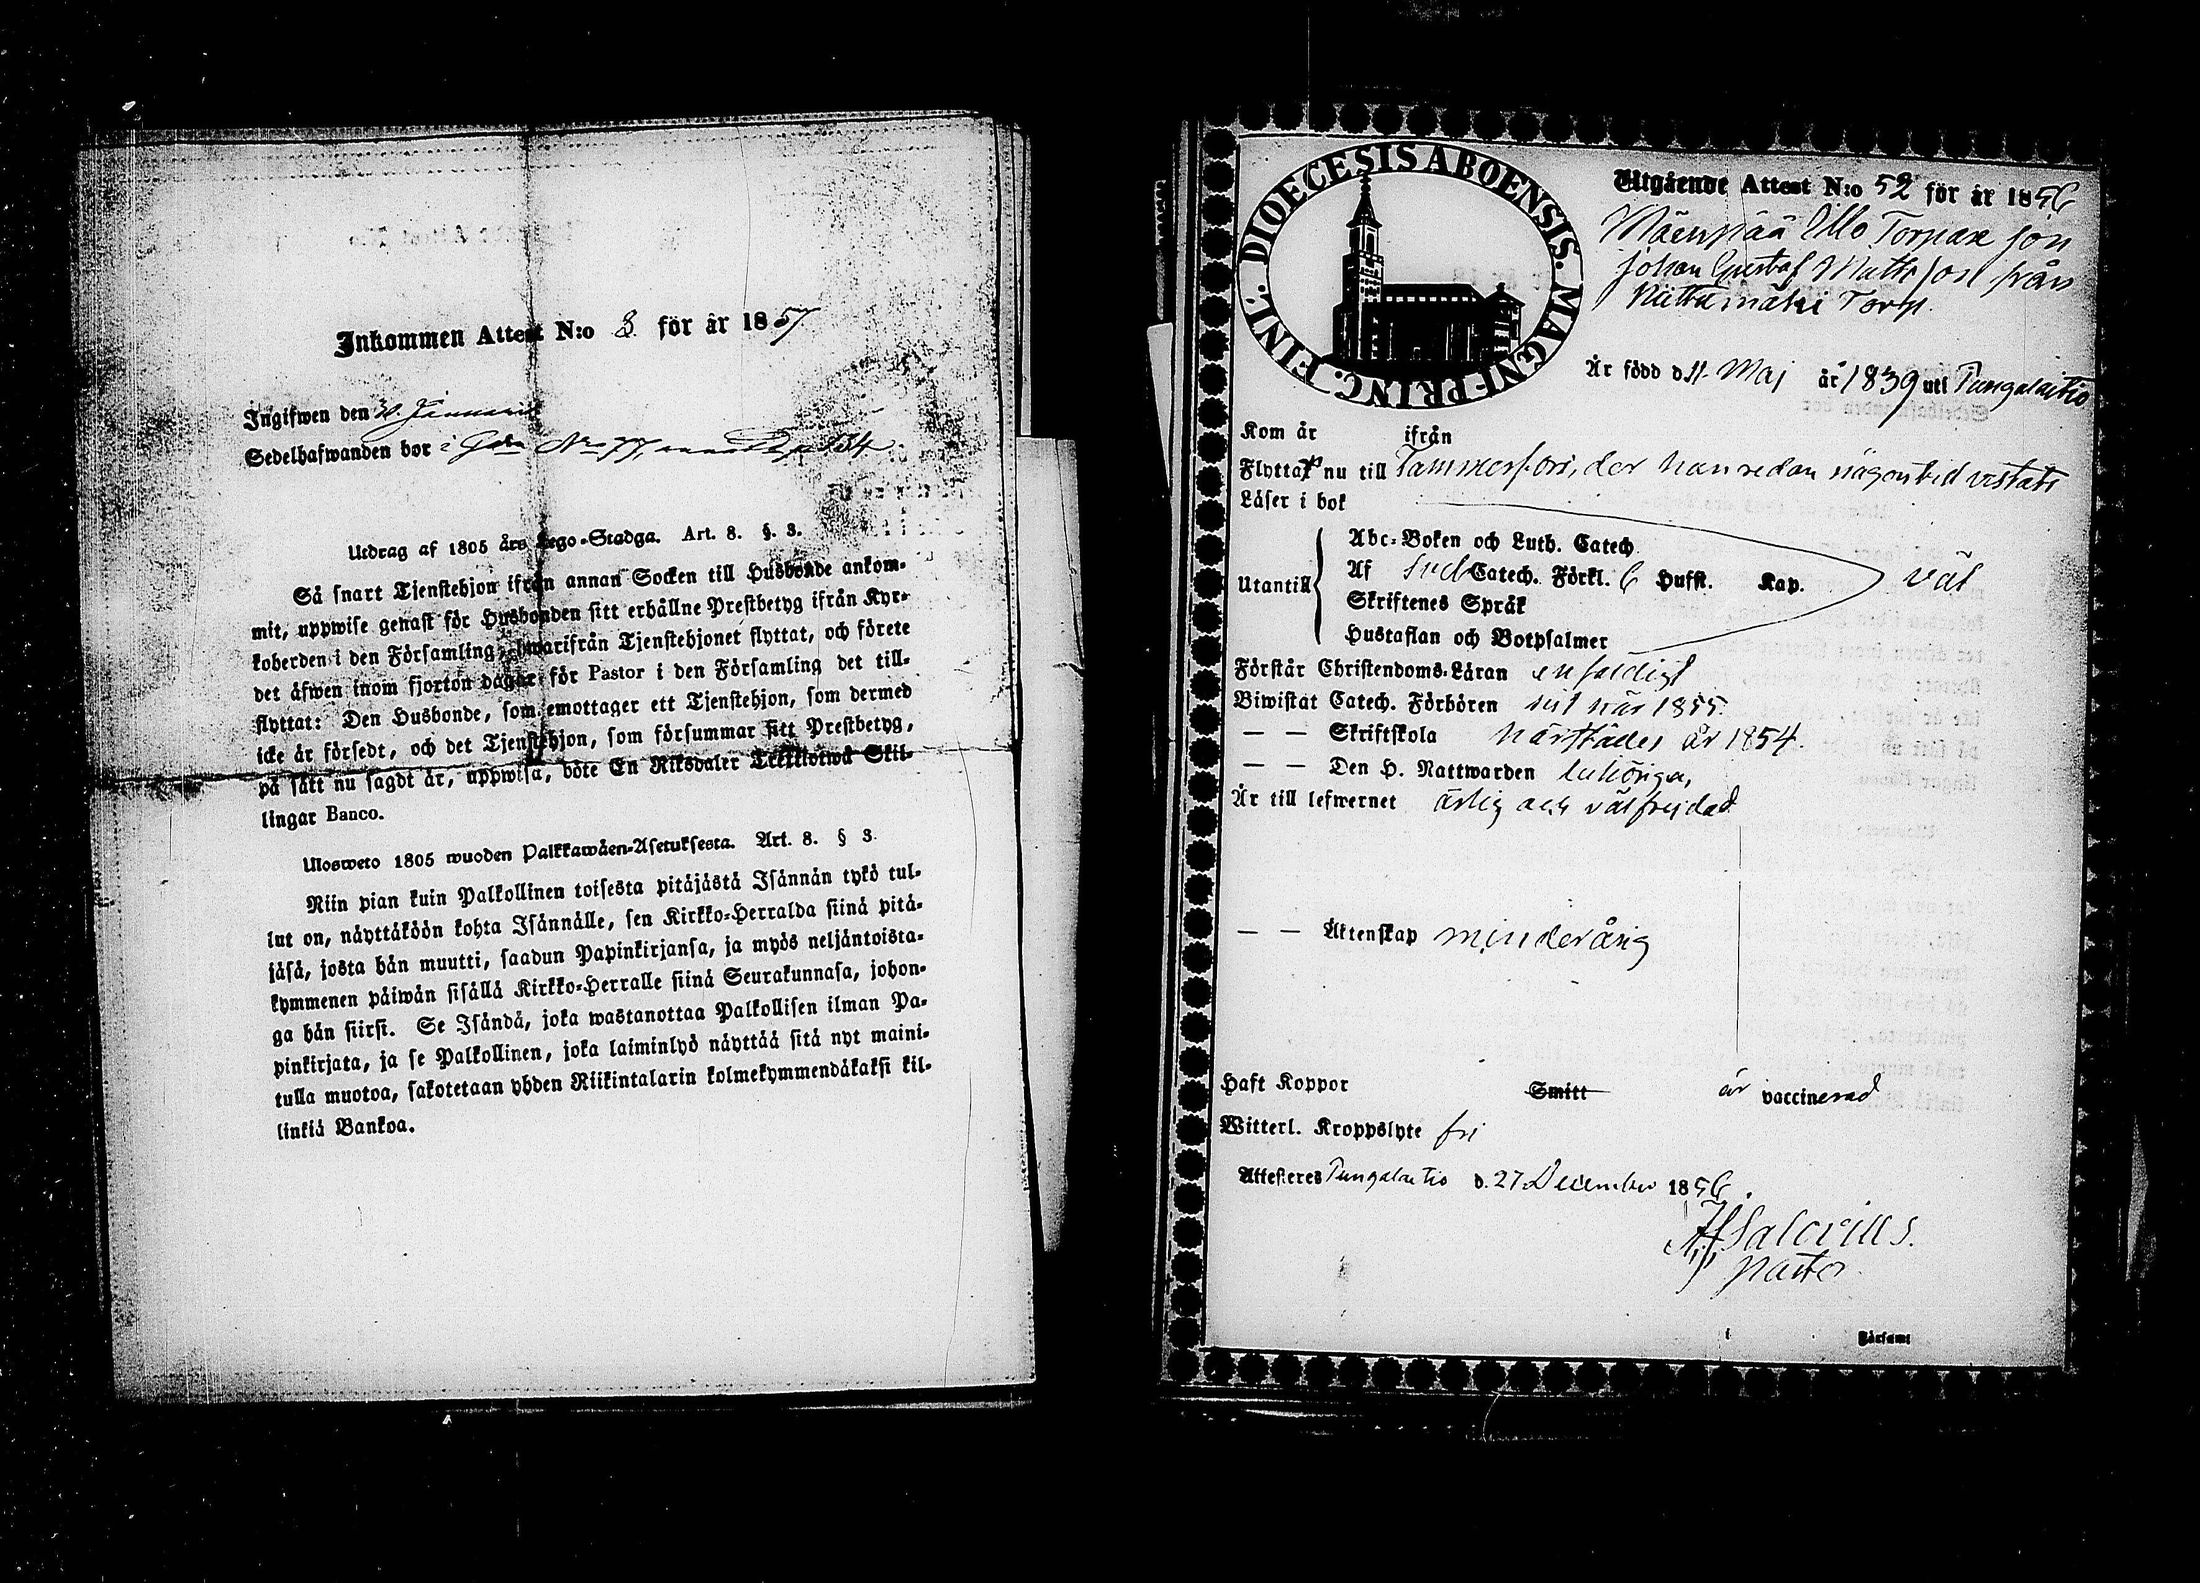 Inkommen Attest N:o 3. för år 1857
Ingifwen den 30. Januarii
Sedelhafwanden bor i Gden No 77,
Utdrag af 1805 års Lego-Stadga. Art. 8. §. 3.
Så snart Tjenstehjon ifrån annan Socken till Husbonde ankom-
mit, uppwise genast för Husbonden sitt erhållne Prestbetyg ifrån Kyr-
koherden i den Församling, hwarifrån Tjenstehjonet flyttat, och förete
det äfwen inom fjorton dagar för Pastor i den Församling det till-
flyttat: Den Husbonde, som emottager ett Tjenstehjon, som dermed
icke är försedt, och det Tjenstehjon, som försummar sitt Prestbetyg,
på sätt nu sagdt är, uppwisa, böte En Riksdaler Trettiotwå Skil-
lingar Banco.
Ulosweto 1805 wuoden Palkkawäen-Asetuksesta. Art. 8. § 3.
Niin pian kuin Palkollinen toisesta pitäjästä Isännän tykö tul-
lut on, näyttäköön kohta Isännälle, sen Kirkko-Herralda siinä pitä-
jäsä, josta hän muutti, saadun Papinkirjansa, ja myös neljäntoista-
kymmenen päiwän sisällä Kirkko-Herralle siinä Seurakunnasa, johon-
ga hän siirsi. Se Isändä, joka wastanottaa Palkollisen ilman Pa-
pinkirjata, ja se Palkollinen, joka laiminlyö näyttää sitä nyt maini-
tulla muotoa, sakotetaan yhden Riikintalarin kolmekymmendäkaksi kil-
linkiä Bankoa.
DIOECESIS ABOENSIS. MAGNI PRINC. FINL.
Utgående Attest N:o 52 för år 1856
Mäenpää Ollo Torpare son
Johan Gustaf Matts son från
Torp.
Är född d. 11. Maj år 1839 uti Pungalaitio
Kom år ifrån
Flyttar nu till Tammerfors, der han redan någon tid vistats
Läser i bok
Utantill
Abc-Boken och Luth. Catech.
Af Sveb Catech. Förkl. 6 Hufst. Kap. väl
Skriftenes Språk
Hustaflan och Botpsalmer
Förstår Christendoms-Läran enfaldigt
Biwistat Catech. Förhören sist här 1855.
— — Skriftskola härstädes år 1854.
— — Den H. Nattwarden behöriga,
Är till lefwernet ärlig och välfrejdad
— — Äktenskap minderårig
Haft Koppor Smitt är vaccinerad
Witterl. Kroppslyte fri
Attesteres Pungalaitio d. 27 December 1856.
Salovius.
pastor
i Församl